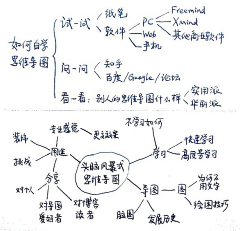 如何自学
思维导图
试一试
纸笔
软件
PC
Freemind
Xmind
其他商业软件
Web
手机
问一问
知乎
百度/Google/论坛
看一看:别人的思维导图什么样
实用派
华丽派
头脑风暴式
思维导图
用途
专业感觉
更有效果
装饰
挑战
分享
对个人
对导图
爱好者
对博客
读者
学习
不学习如何
快速学习
高质量学习
导图
脑图
发展历史
图
为何不
用文字
绘图技巧